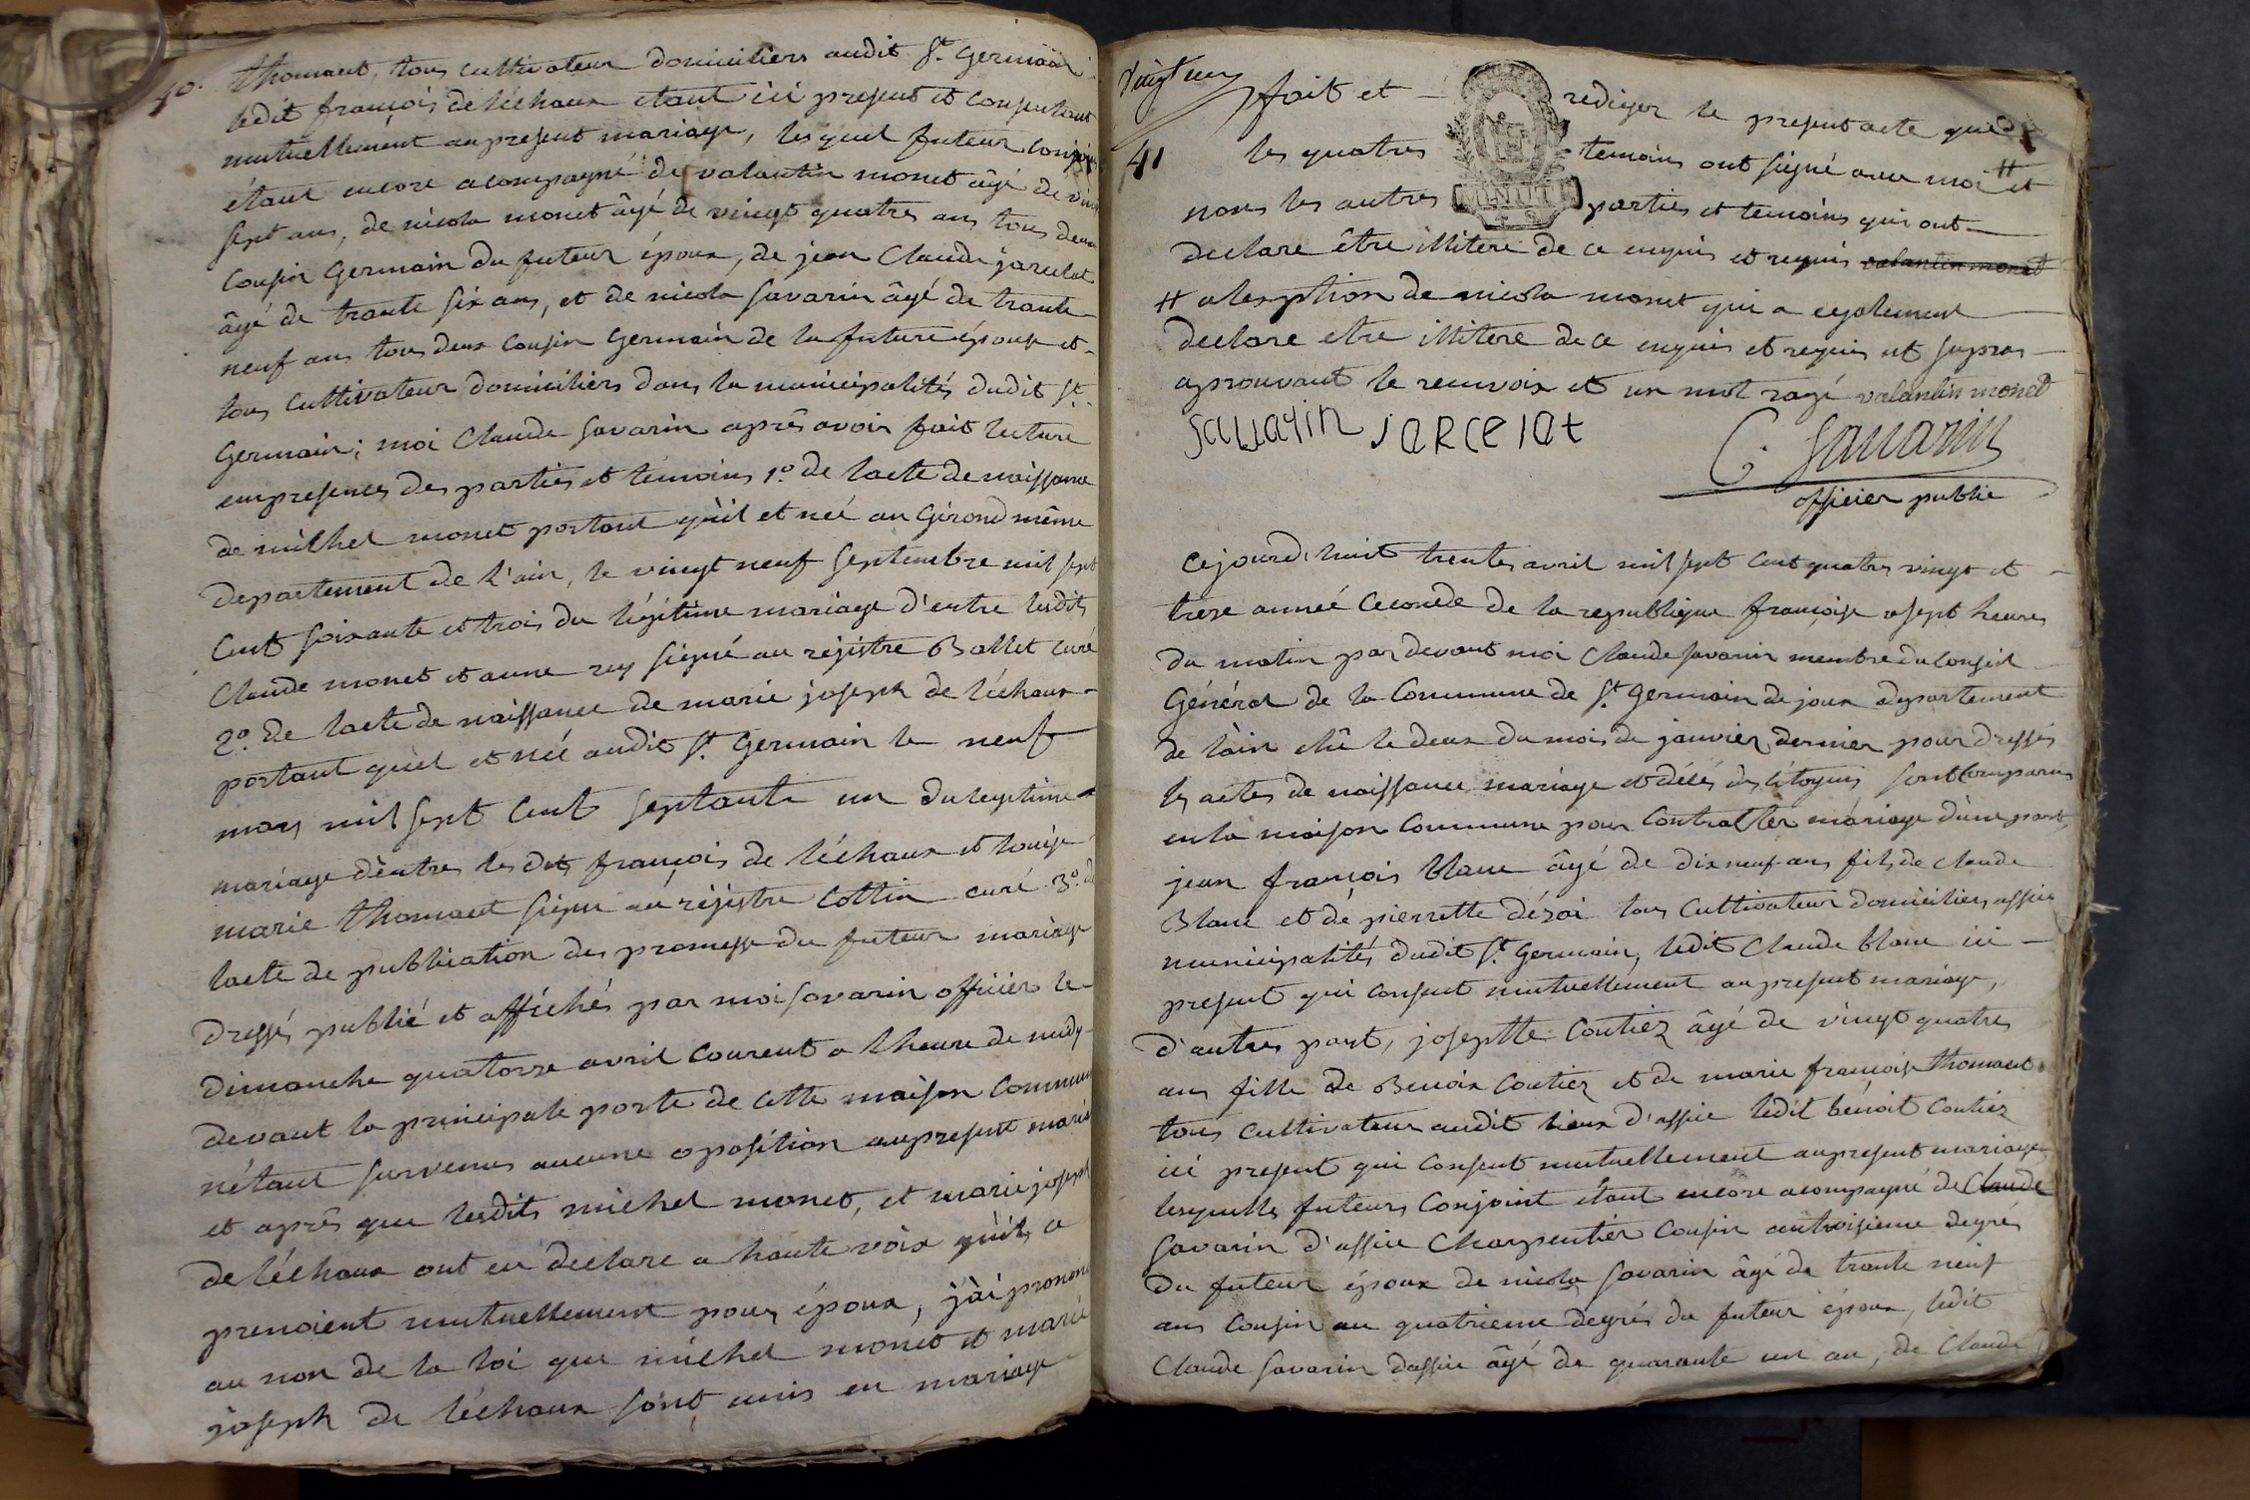 40.
thomaut, tous cultivateur domiciliers audit St. Germain
ledit françois de léchaux etant ici present et consentant
mutuellement au present mariage, lesquel futeur conjoins
étant encore acompagné de valantin monet âgé de vingt
sept ans, de nicola monet âgé de vingt quatres ans tous deux
cousin Germain du futeur époux, de jean Claude jarcelat
âgé de trante six ans, et de nicola savarin âgé de trante
neuf ans tous deux cousin Germain de la future épouse et
tous cultivateur domiciliers dans la municipalités dudit St.
Germain; moi Claude savarin après avoir fait lecture
en presences des parties et témoins 1o. de lacte de naissance
de michel monet portant qu'il et née au Girond même
departement de l'ain, le vingt neuf septembre mil sept
cent soixante et trois du légitime mariage d'entre lesdits
Claude monet et anne rey signé au réjistre Ballet curé
2o. de lacte de naissance de marie joseph de léchaux
portant quel et née audit St. Germain le neuf
mars mil sept cent septante un du legitime
mariage d'entres lesdits françois de léchaux et louise
marie thomaut signé au réjistre Cottin curé 3o. de
lacte de publication des promesse du futeur mariage
dressés publié et affichés par moi savarin officier le
dimanche quatorze avril courent a lheure de midy
devant la principale porte de cette maison commune
n'étant survenus aucune oposition au present mariage
et après que lesdits michel monet, et marie joseph
de léchaux ont eu declare a haute voix qu'ils ce
prenoient mutuellement pour époux, j'ai prononcé
au non de la loi que michel monet et marie
joseph de léchaux sont unis en mariage
vingt un
41
fait et rediger le present acte que
les quatres temoins ont signé avec moi # et
MINUTE
nons les autres parties et temoins qui ont
declare être illitere de ce enquis et requis valantin monet
# alexption de nicola monet qui a egalement
declare etre illitere de ce enquis et requis ut supras
aprouvant le renvoix et un mot rayé valantin monet
savarin jarcelat
C. Savarin
officier public
Cejourd'huit trentes avril mil sept cent quatres vingt et
treze anneé Ceconde de la republique françoise a sept heures
du matin par devant moi Claude savarin membre du conseil
Général de la Commune de St. Germain de joux departement
de l'ain elû le deux du mois de janvier dernier pour dressés
les actes de naissance mariage et décés des citoyens sont comparus
en la maison Commune pour Contracter mariage d'une part
jean françois blanc âgé de dix neuf ans fils de claude
Blanc et de pierrette dézoi tous Cultivateur domiciliers assiu
municipalités dudit St. Germain, ledit Claude blanc ici
present qui consent mutuellement au present mariage,
d'autres part, joseptte Coutiez âgé de vingt quatres
ans fille de Benoix Coutiez et de marie françoise thomaut
tous cultivateur audit lieux d'assiu ledit bénoit Coutiez
ici present qui consent mutuellement au present mariage
lesquells futeurs Conjoint étant encore acompagné de Claude
savarin d'assiu Charpentier Cousin au troisieme degrés
du futeur époux de nicola savarin âgé de trante neuf
ans cousin au quatrieme degrés du futeur époux, ledit
Claude savarin dassiu âgé de quarante un an, de Claude